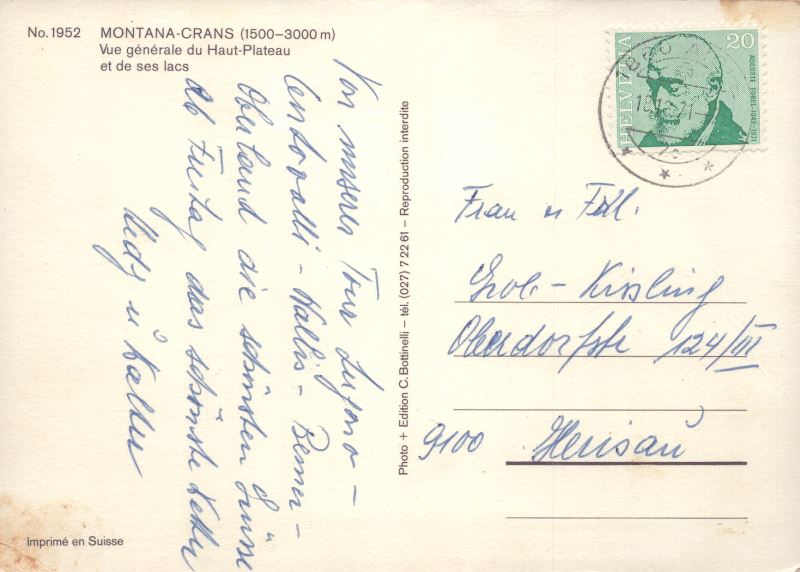 No. 1952 MONTANA-CRANS (1500–3000 m)
Vue générale du Haut-Plateau
et de ses lacs
Von unserer Tour Lugano –
Centovalli – Wallis – Berner –
Oberland die schönsten Grüsse
Ab Freitag das schönste Wetter
u Walter
Photo + Edition C. Bottinelli – tél. (027) 7 22 61 – Reproduction interdite
HELVETIA
20
AUGUSTE FOREL · 1848-1931
Frau u Frl.
Grob – Kissling
Oberdorfstr 124/III
9100 Herisau
Imprimé en Suisse